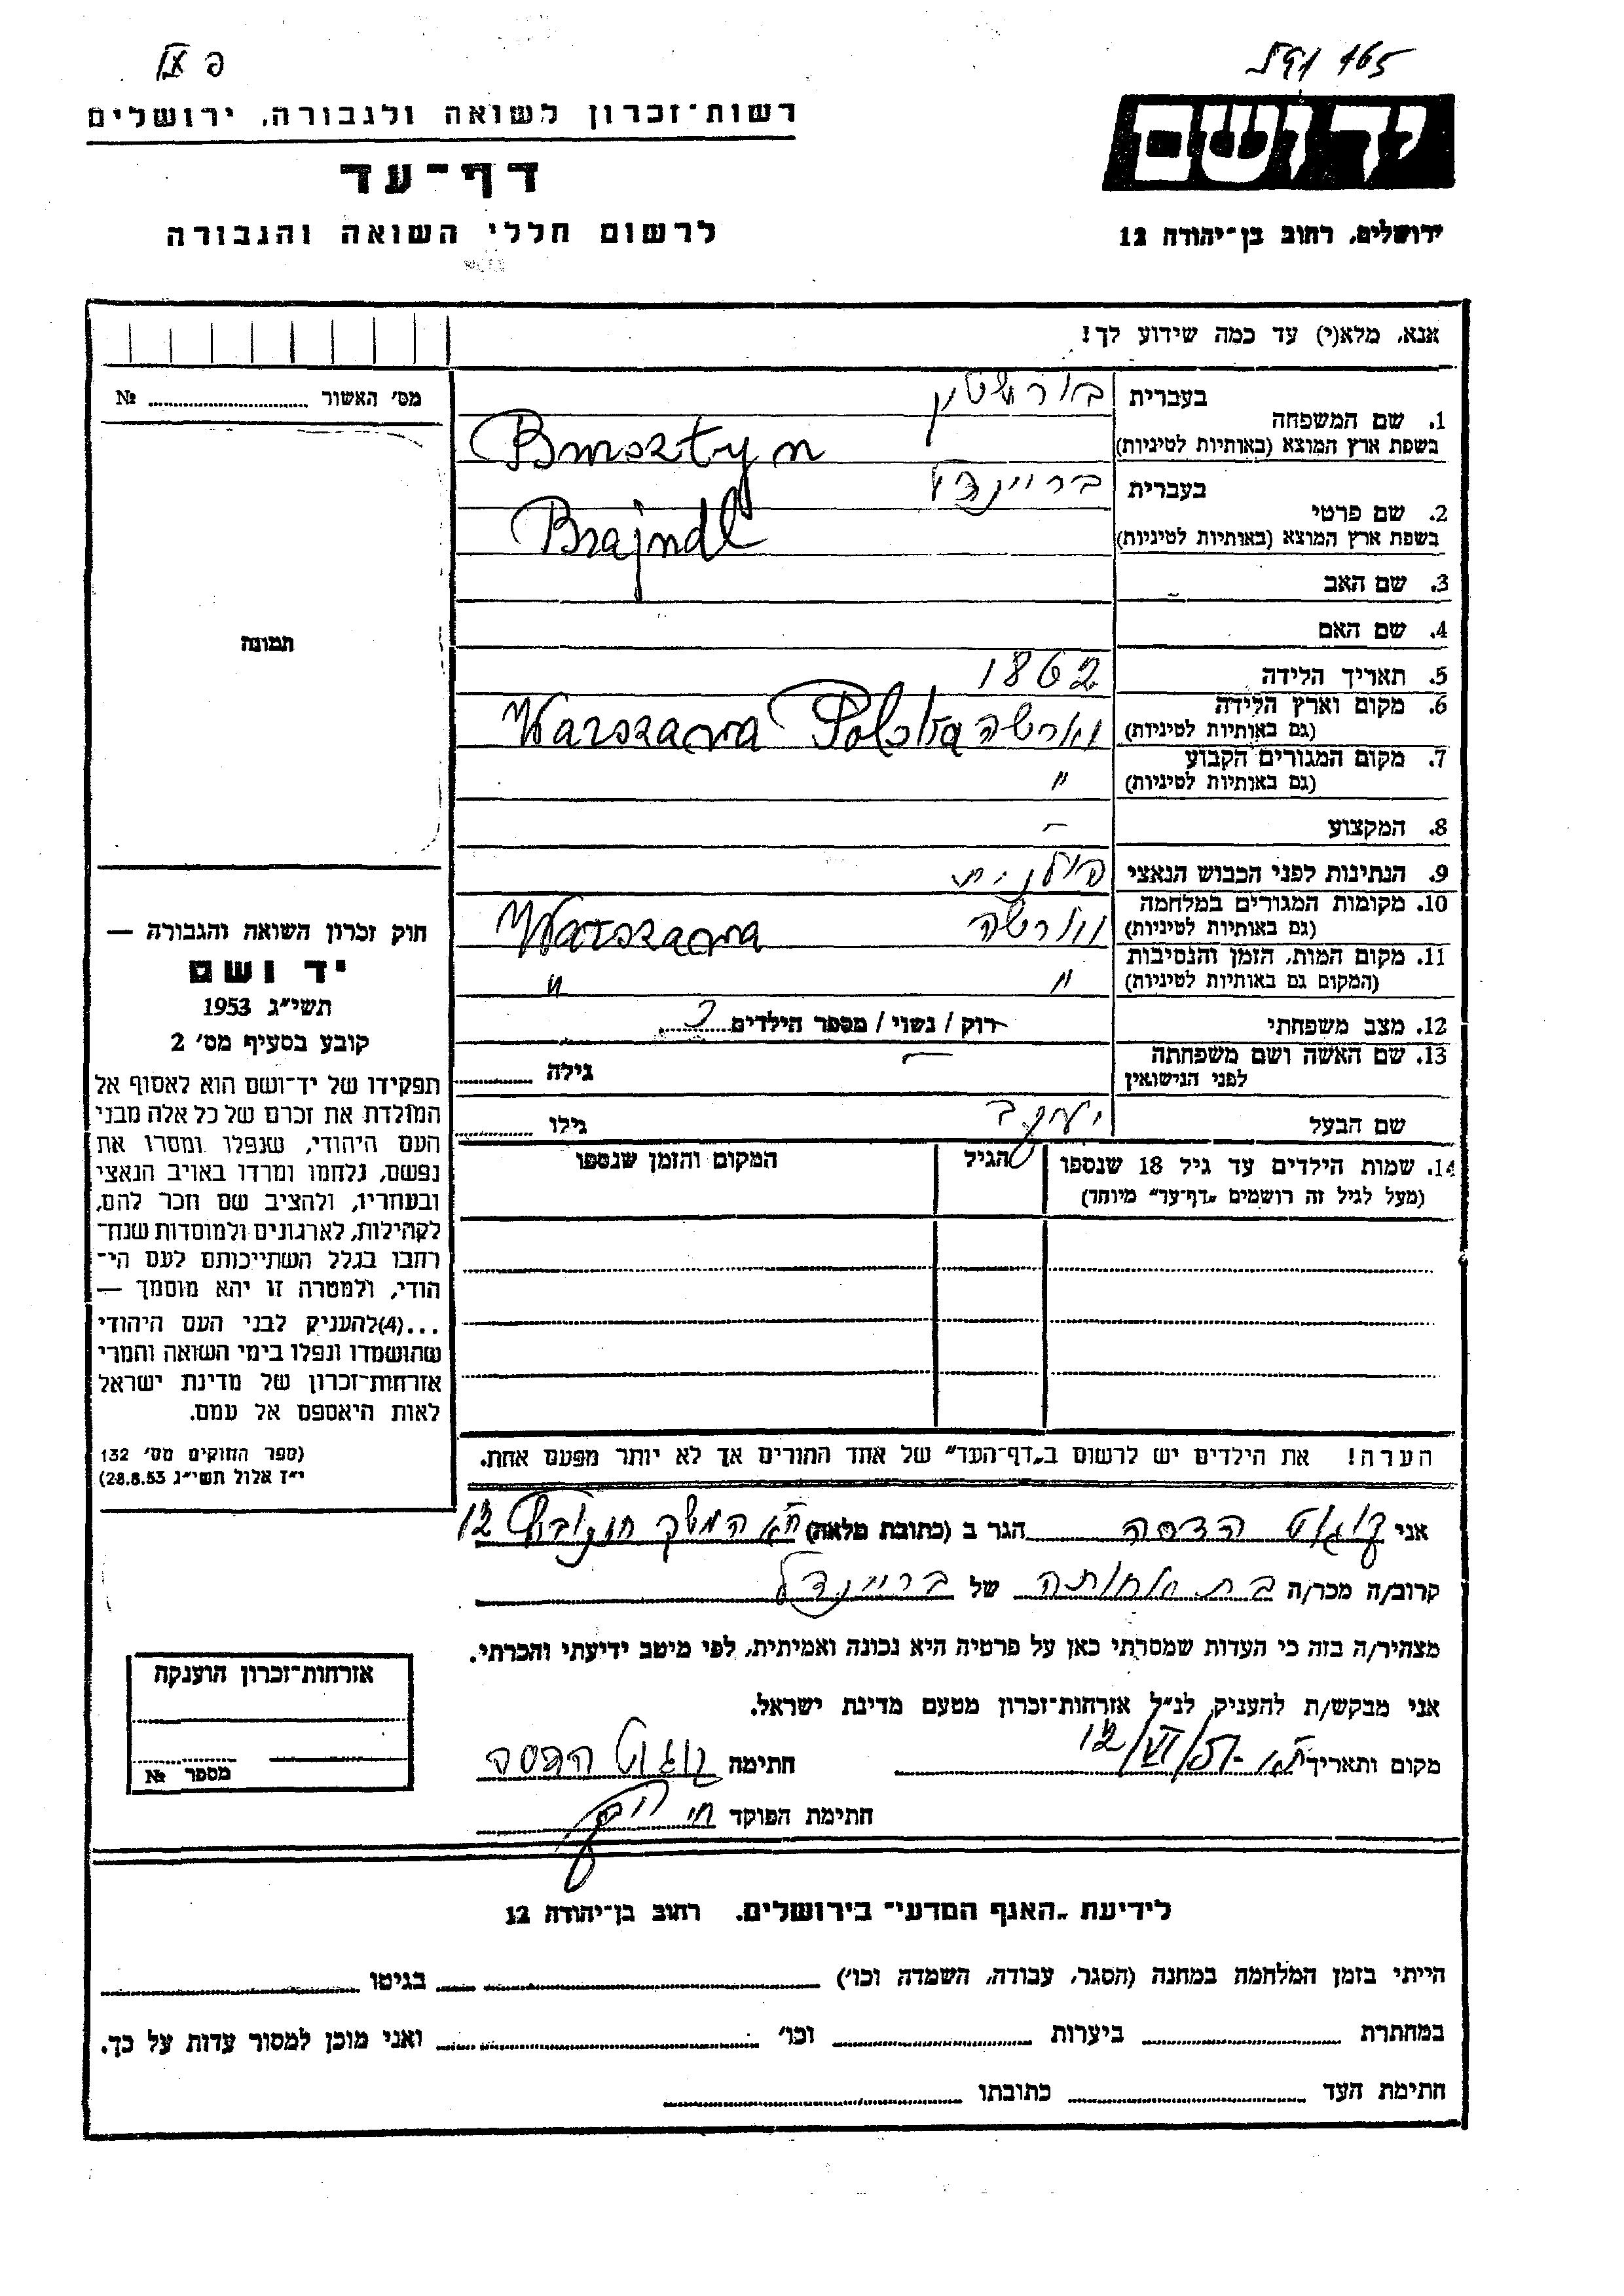 165
רשות־זכרון לשואה ולגבורה, ירושלים
דף־עד
לרשום חללי השואה והגבורה
יד ושם
ירושלים, רחוב בן־יהודה 12
אנא, מלא(י) עד כמה שידוע לך!
מס׳ האשור № ........
1. שם המשפחה
בעברית בורשטין
בשפת ארץ המוצא (באותיות לטיניות) Bursztyn
2. שם פרטי
בעברית בריינדל
בשפת ארץ המוצא (באותיות לטיניות) Brajndl
3. שם האב
4. שם האם
5. תאריך הלידה 1862
6. מקום וארץ הלידה
(גם באותיות לטיניות) ווארשה Warszawa Polska
7. מקום המגורים הקבוע
(גם באותיות לטיניות) "
8. המקצוע –
9. הנתינות לפני הכבוש הנאצי פולנית
10. מקומות המגורים במלחמה
(גם באותיות לטיניות) ווארשה Warszawa
11. מקום המות, הזמן והנסיבות
(המקום גם באותיות לטיניות) " "
12. מצב משפחתי רוק / נשוי / מספר הילדים
13. שם האשה ושם משפחתה
לפני הנישואין – גילה ........
שם הבעל יעקב גילו ........
14. שמות הילדים עד גיל 18 שנספו הגיל המקום והזמן שנספו
(מעל לגיל זה רושמים „דף־עד" מיוחד)
הערה! את הילדים יש לרשום ב„דף־העד" של אחד ההורים אך לא יותר מפעם אחת.
תמונה
חוק זכרון השואה והגבורה —
יד ושם
תשי״ג 1953
קובע בסעיף מס׳ 2
תפקידו של יד־ושם הוא לאסוף אל
המולדת את זכרם של כל אלה מבני
העם היהודי, שנפלו ומסרו את
נפשם, נלחמו ומרדו באויב הנאצי
ובעוזריו, ולהציב שם וזכר להם,
לקהילות, לארגונים ולמוסדות שנח־
רבו בגלל השתייכותם לעם הי־
הודי, ולמטרה זו יהא מוסמך —
...(4) להעניק לבני העם היהודי
שהושמדו ונפלו בימי השואה והמרי
אזרחות־זכרון של מדינת ישראל
לאות היאספם אל עמם.
(ספר החוקים מס׳ 132
י״ז אלול תשי״ג 28.8.53)
אני הדסה הגר ב (כתובת מלאה) ת״א 12
קרוב/ה מכר/ה בת אחותה של בריינדל
מצהיר/ה בזה כי העדות שמסרתי כאן על פרטיה היא נכונה ואמיתית, לפי מיטב ידיעתי והכרתי.
אני מבקש/ת להעניק לנ״ל אזרחות־זכרון מטעם מדינת ישראל.
מקום ותאריך ת״א 12/VI/57 חתימה הדסה
חתימת הפוקד
אזרחות־זכרון הוענקה
מספר №
לידיעת „האגף המדעי" בירושלים, רחוב בן־יהודה 12
הייתי בזמן המלחמה במחנה (הסגר, עבודה, השמדה וכו׳) ........ בגיטו ........
במחתרת ........ ביערות ........ וכו׳ ........ ואני מוכן למסור עדות על כך.
חתימת העד ........ כתובתו ........